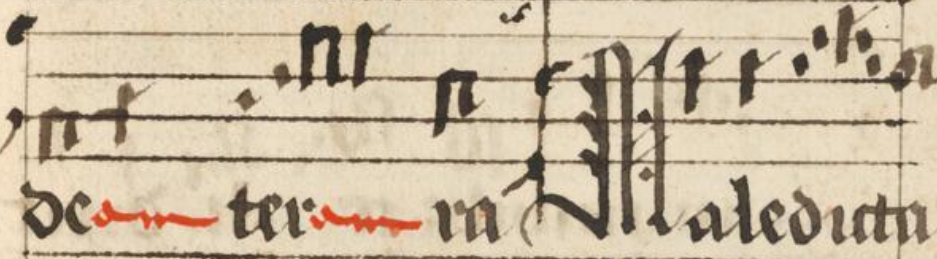 de ter ra Maledicta